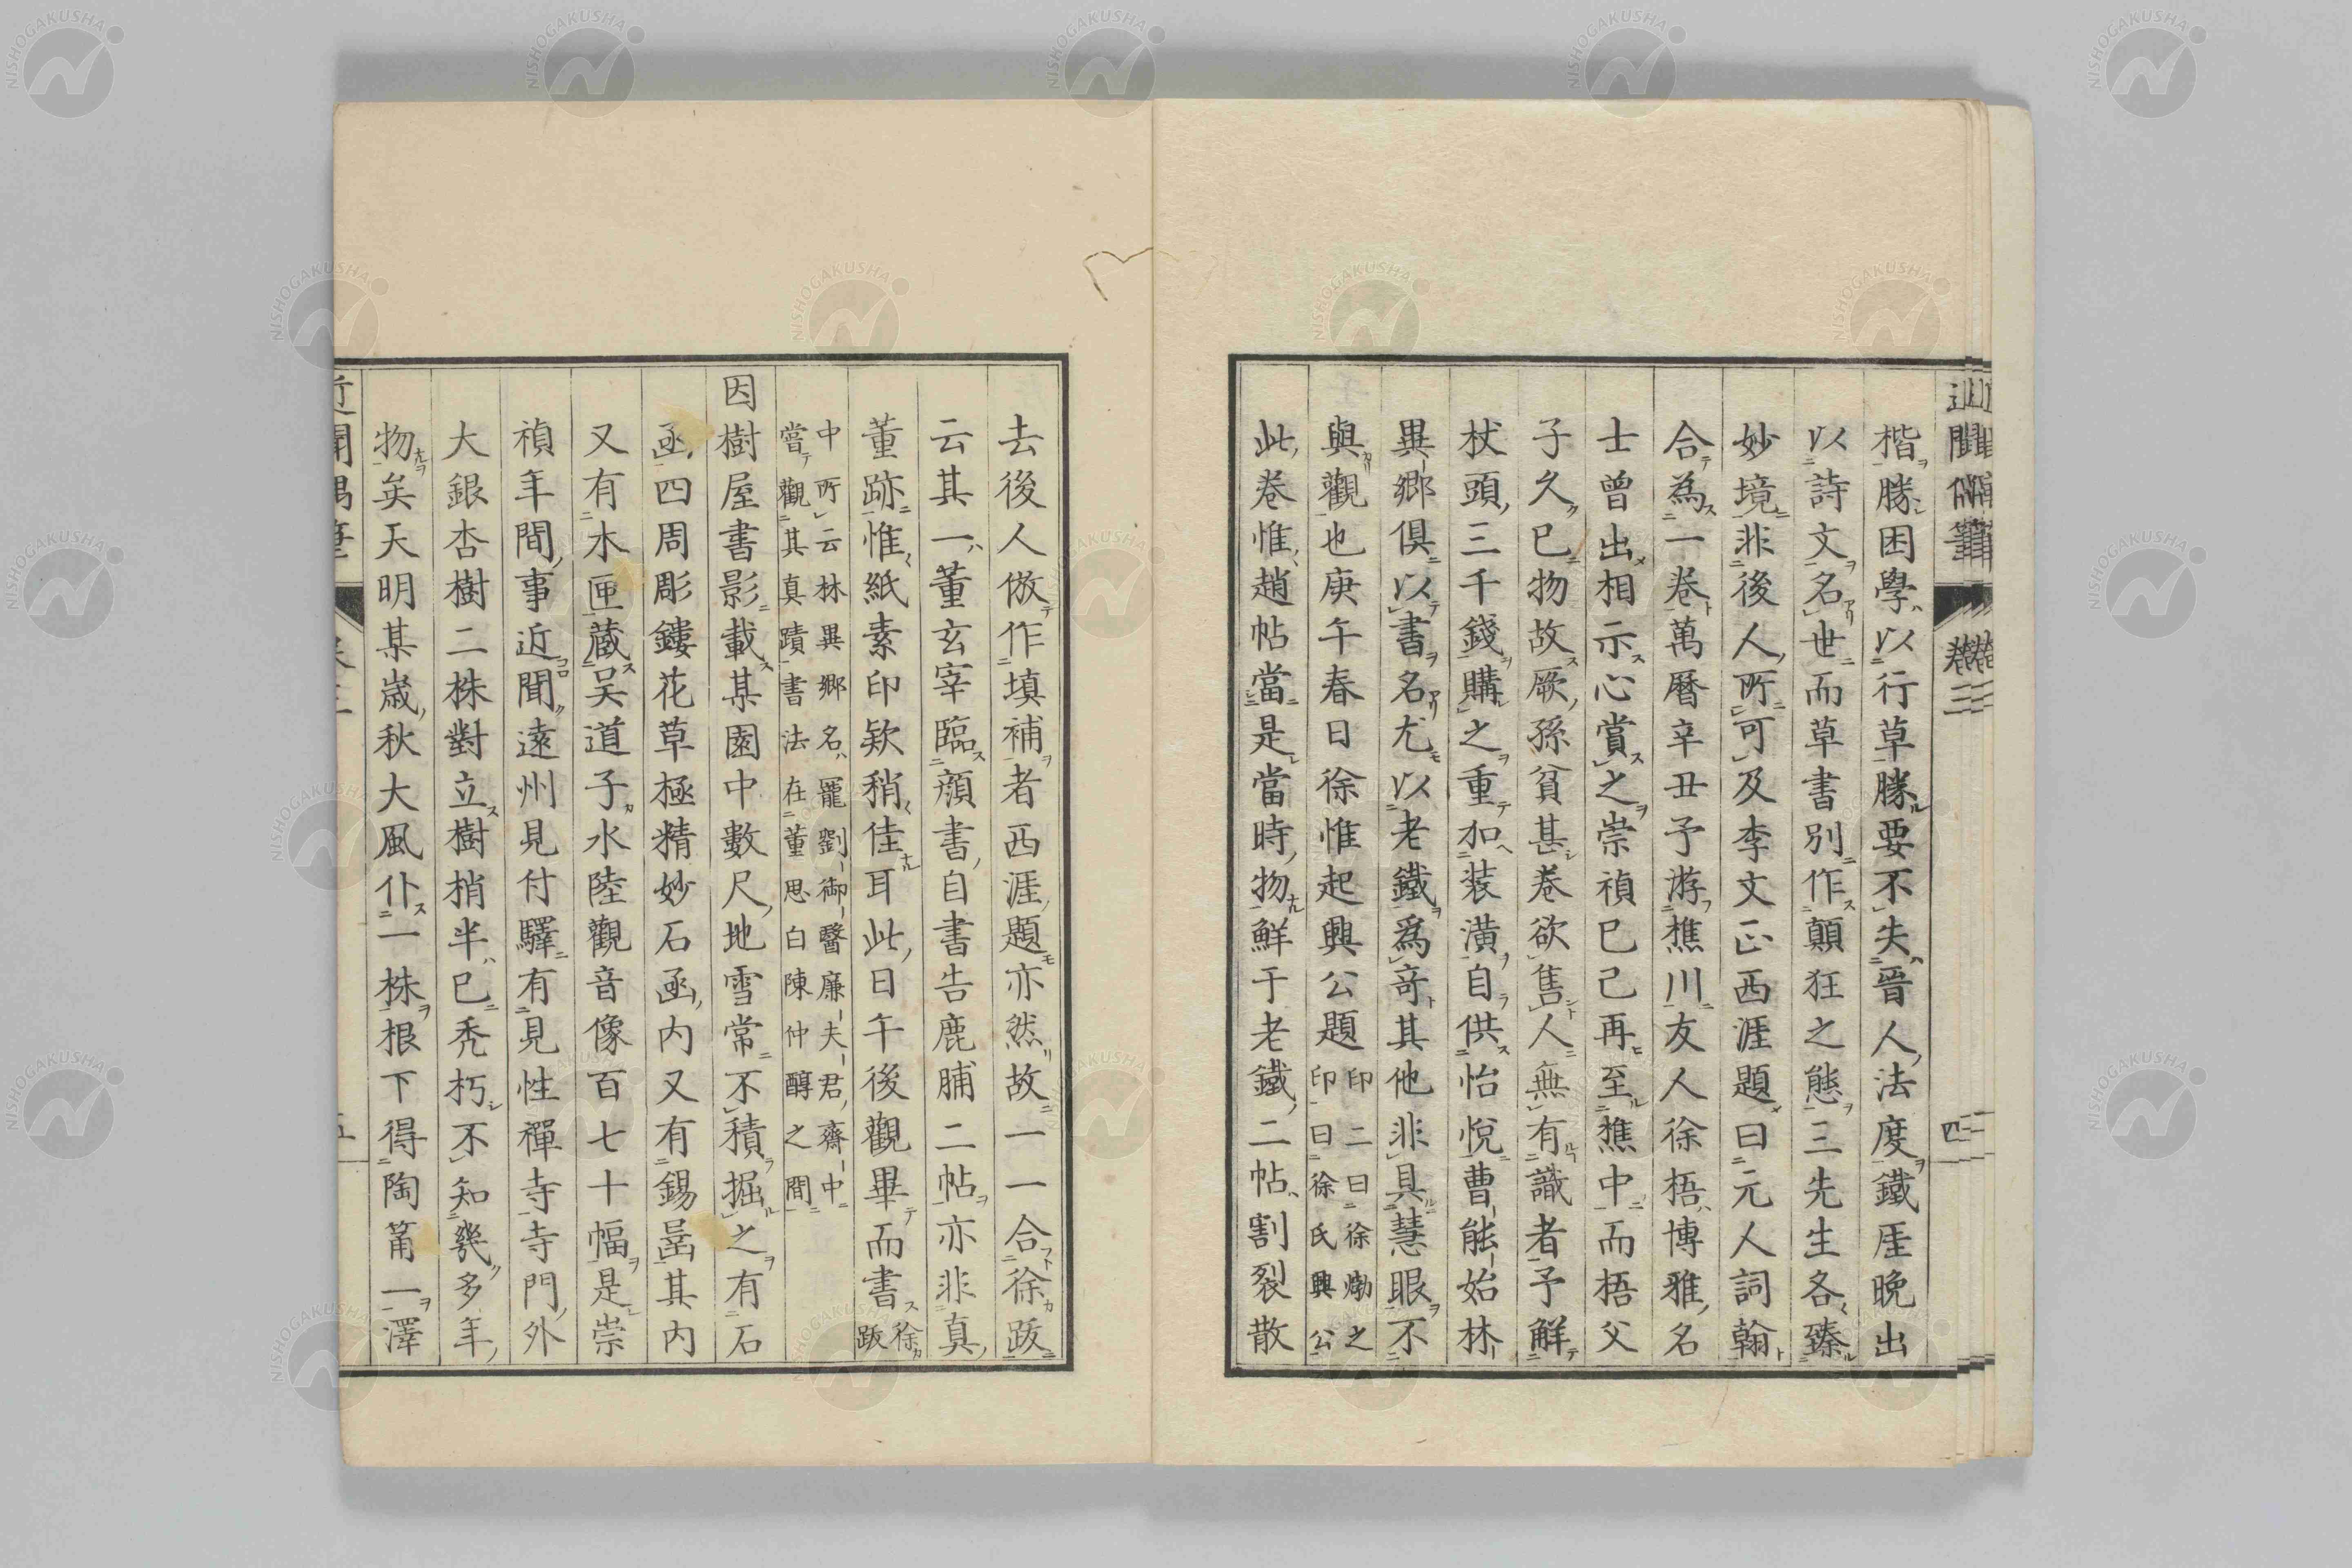 楷勝困學以行草勝要不失晉人法度鐵厓晩出
以詩文名世而草書別作顛狂之態三先生各臻
妙境非後人所可及李文正西涯題曰元人詞翰
合為一卷萬曆辛丑予游樵川友人徐梧博雅名
士曾出相示心賞之崇禎已己再至樵中而梧父
子久已物故厥孫貧甚卷欲售人無有識者予解
杖頭三千錢購之重加装潢自供怡悅曹能始林
異鄉俱以書名尤以老鐵爲竒其他非具慧眼不
與觀也庚午春日徐惟起興公題印二曰徐㶿之
印曰徐氏興公
此卷惟趙帖當是當時物鮮于老鐵二帖割裂散
近聞偶筆 卷三 四
去後人倣作填補者西涯題亦然故一一合徐跋
云其一董玄宰臨顔書自書告鹿脯二帖亦非真
董跡惟紙素印欵稍佳耳此日午後觀畢而書徐
跋
中所云林異鄉名寵劉御醫廉夫君齋中
嘗觀其真蹟書法在董思白陳仲醇之間
因樹屋書影載某園中數尺地雪常不積掘之有石
函四周彫鏤花草極精妙石函内又有錫凾其内
又有木匣蔵吴道子水陸觀音像百七十幅是崇
禎年間事近聞遠州見付驛有見性禪寺寺門外
大銀杏樹二株對立樹梢半已禿朽不知幾多年
物矣天明某歲秋大風仆一株根下得陶筩一澤
近聞偶筆 五
NISHOGAKUSHA